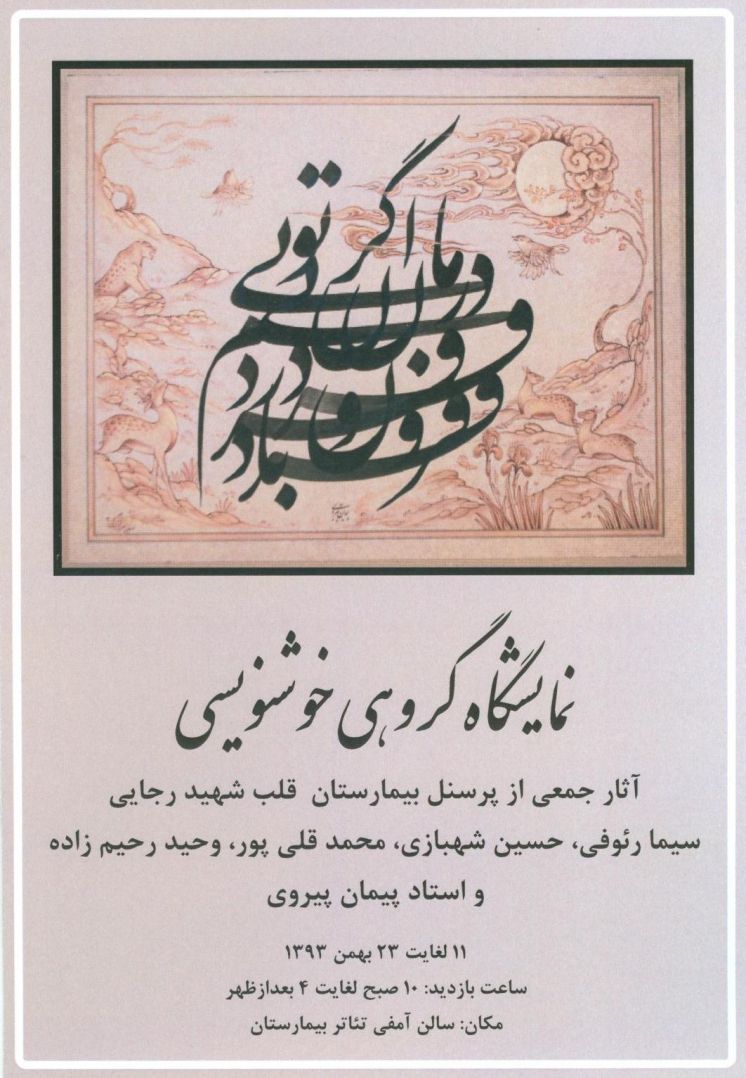 درمان اگر تویی
نمایشگاه گروهی خوشنویسی
آثار جمعی از پرسنل بیمارستان قلب شهید رجایی
سیما رئوفی، حسین شهبازی، محمد قلی پور، وحید رحیم زاده
و استاد پیمان پیروی
۱۱ لغایت ۲۳ بهمن ۱۳۹۳
ساعت بازدید: ۱۰ صبح لغایت ۴ بعدازظهر
مکان: سالن آمفی تئاتر بیمارستان